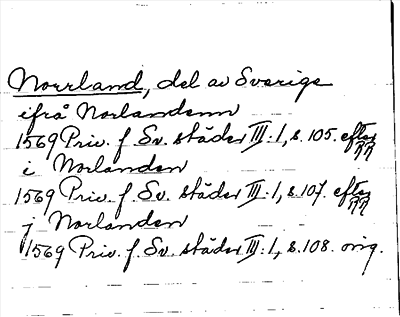 Norrland, del av Sverige
ifrå Norlandenn
1569 Priv. f. Sv. städer III:1, s. 105. efter
i Norlanden
1569 Priv. f. Sv. städer III:1, s. 107. efter
j Norlanden
1569 Priv. f. Sv. städer III:1, s. 108. orig.